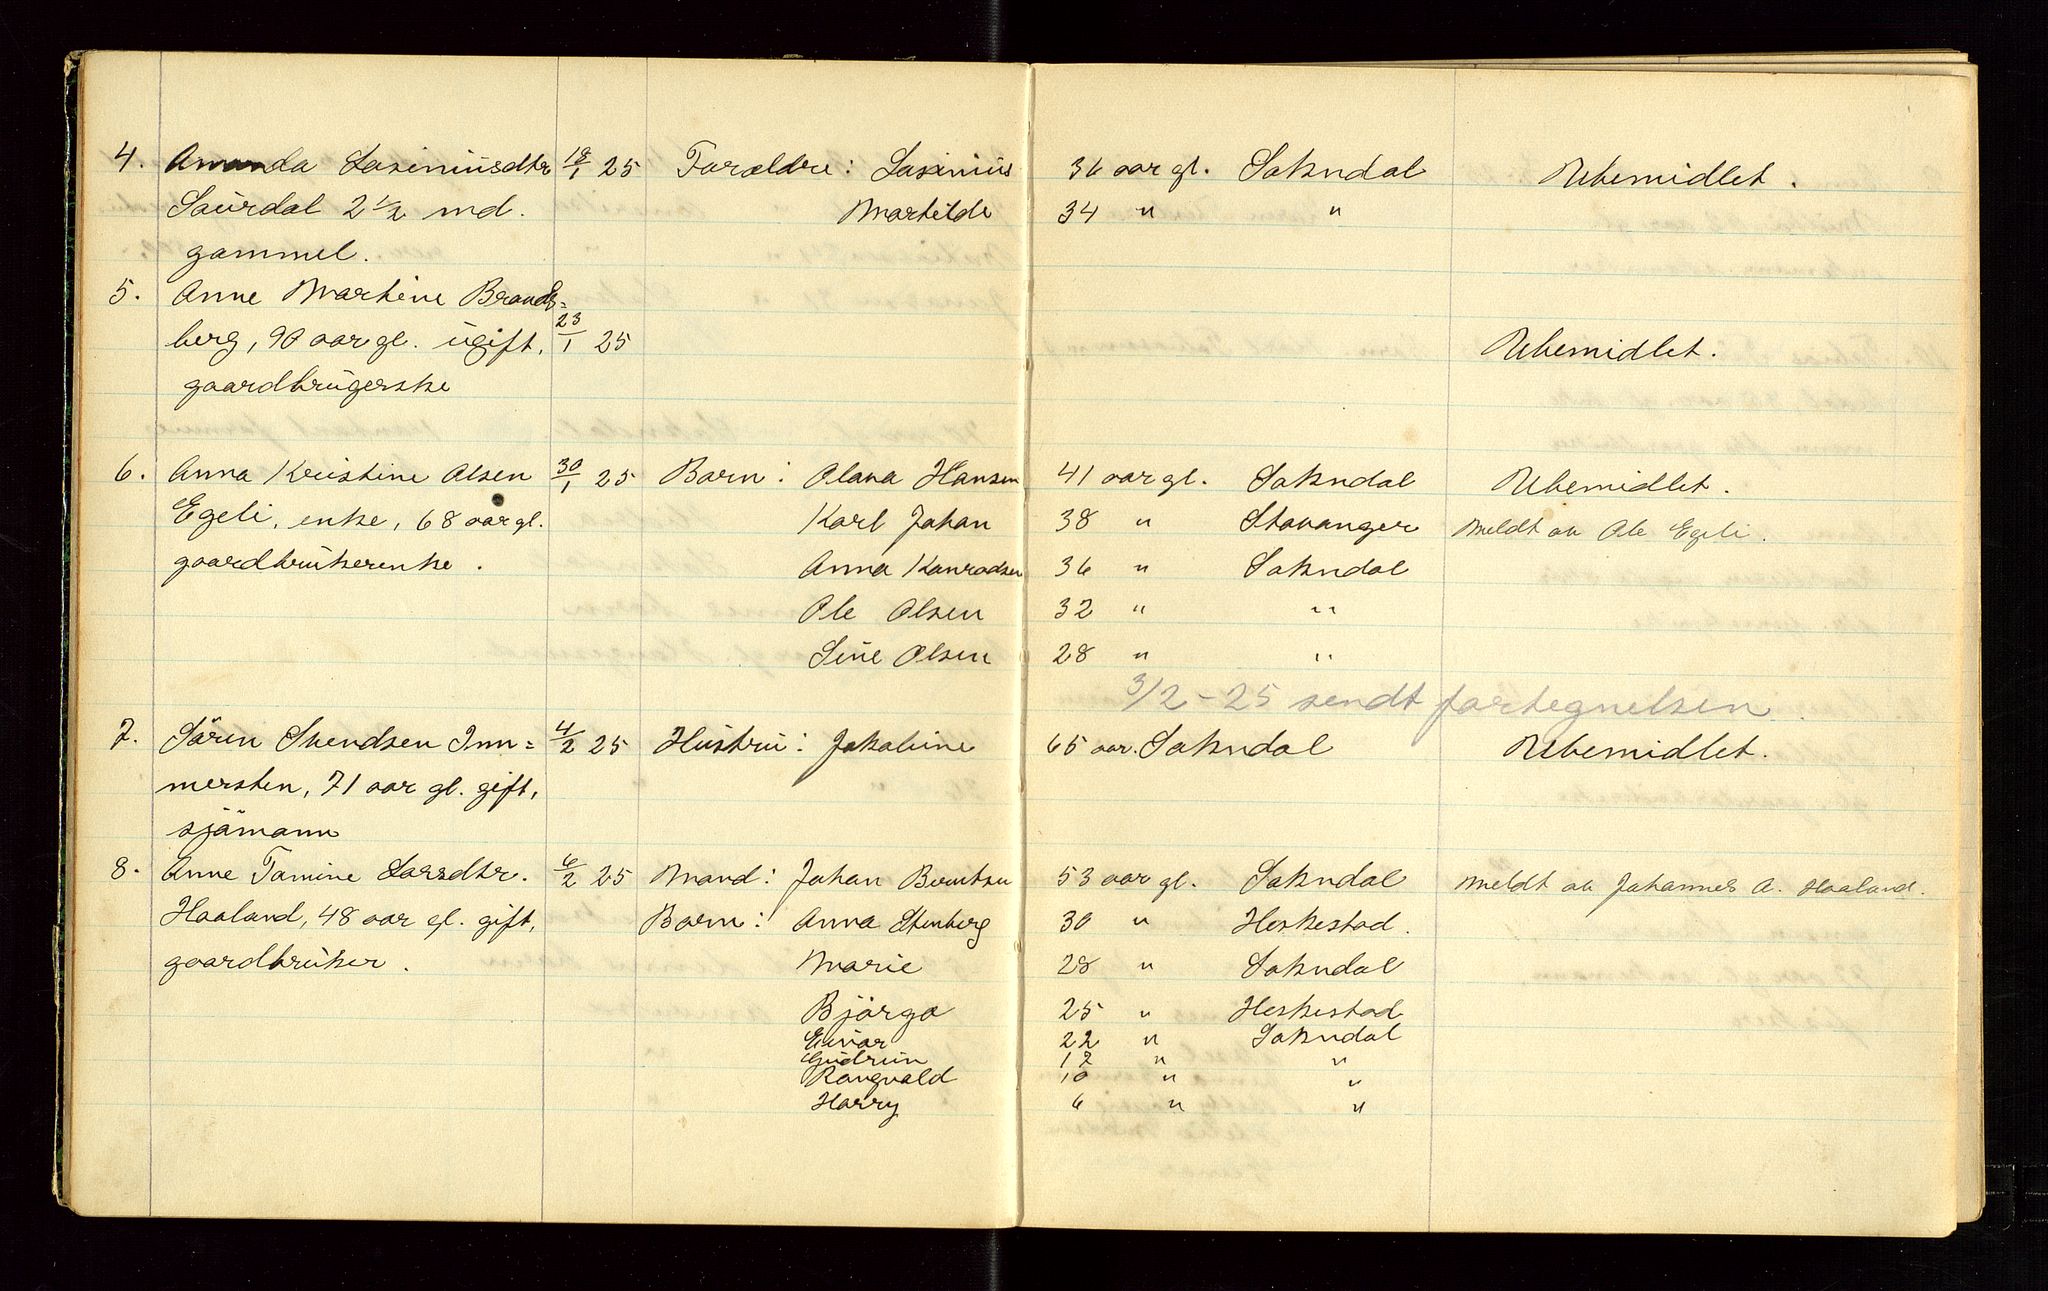 4. Amanda Lasiniusdtr 18/1 25 Forældre: Lasinius 36 aar gl. Sokndal Ubemidlet.
Saurdal 2 1/2 md. Martilde 34 " "
gammel.
5. Anne Martine Brands=
berg, 90 aar gl. ugift, 23/1 25 Ubemidlet.
gaardbrugerske
6. Anna Kristine Olsen 30/1 25 Barn: Olava Hansen 41 aar gl. Sokndal Ubemidlet.
Egeli, enke, 68 aar gl. Karl Johan 38 " Stavanger Meldt av Ole Egeli.
gaardbrukerenke. Anna Konradsen 36 " Sokndal
Ole Olsen 32 " "
Sine Olsen 28 " "
3/2-25 sendt fortegnelsen.
7. Sören Svendsen Imm= 4/2 25 Hustru: Jakobine 65 aar. Sokndal Ubemidlet.
mersten, 71 aar gl. gift,
sjömann
8. Anne Tomine Larsdtr. 6/2 25 Mand: Johan Berntsen 53 aar gl. Sokndal Meldt av Johannes A. Haaland.
Haaland, 48 aar gl. gift, Barn: Anna Stenberg 30 " Heskestad.
gaardbruker. Marie 28 " Sokndal
Björga 25 " Heskestad
Einar 22 " Sokndal
Gudrun 12 " "
Rangvald 10 " "
Harry 6 " "